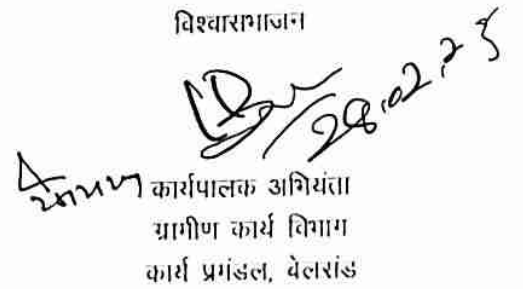 विश्वासभाजन
28.02.23
कार्यपालक अभियंता
ग्रामीण कार्य विभाग
कार्य प्रमंडल, वेलसंड